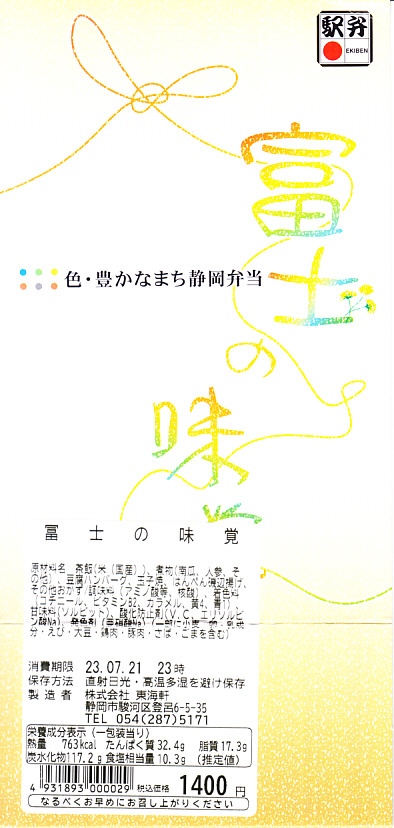 駅弁
EKIBEN
富士の味
色・豊かなまち静岡弁当
富士の味覚
原材料名 茶飯(米(国産))、煮物(南瓜、人参、そ
の他)、豆腐ハンバーグ、玉子焼、はんぺん磯辺揚げ、
その他おかず/調味料(アミノ酸等、核酸)、着色料
(コチニール、ビタミンB2、カラメル、黄4、青1)、
甘味料(ソルビット)、酸化防止剤(V.C、エリソルビ
ン酸Na)、発色剤(亜硝酸Na)、(一部に小麦・卵・乳成
分・えび・大豆・鶏肉・豚肉・さば・ごまを含む)
消費期限 23.07.21 23時
保存方法 直射日光・高温多湿を避け保存
製造者 株式会社 東海軒
静岡市駿河区登呂6-5-35
TEL 054(287)5171
栄養成分表示(一包装当り)
熱量 763kcal たんぱく質 32.4g 脂質 17.3g
炭水化物117.2g 食塩相当量 10.3g (推定値)
4 931893 000029 税込価格 1400円
なるべくお早めにお召し上がりください